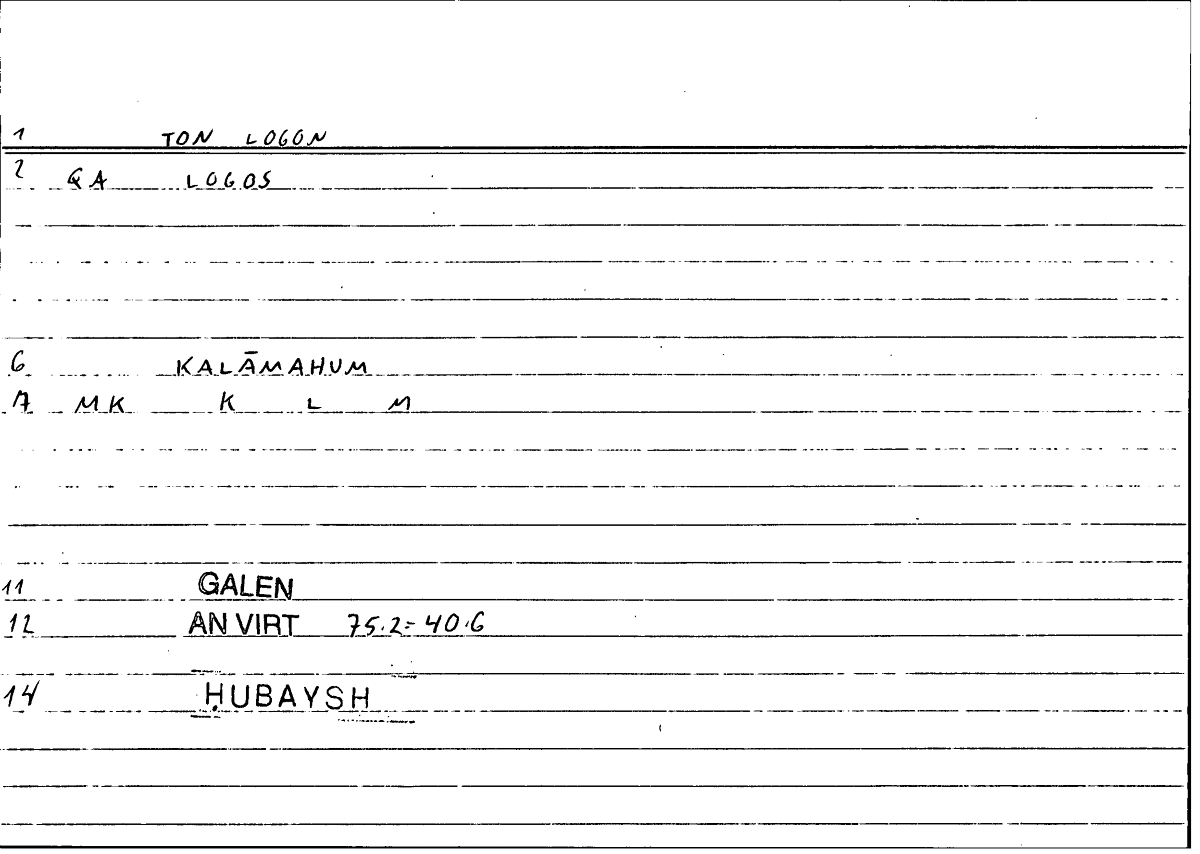 1 TON LOGON
2 QA LOGOS
6 KALĀMAHUM
7 MK K L M
11 GALEN
12 AN VIRT 75.2=40.6
14 ḤUBAYSH